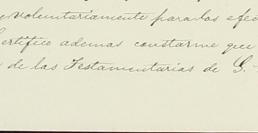 voluntariamente para los efec
Certifico ademas constarme que
de las Testamentarias de G.